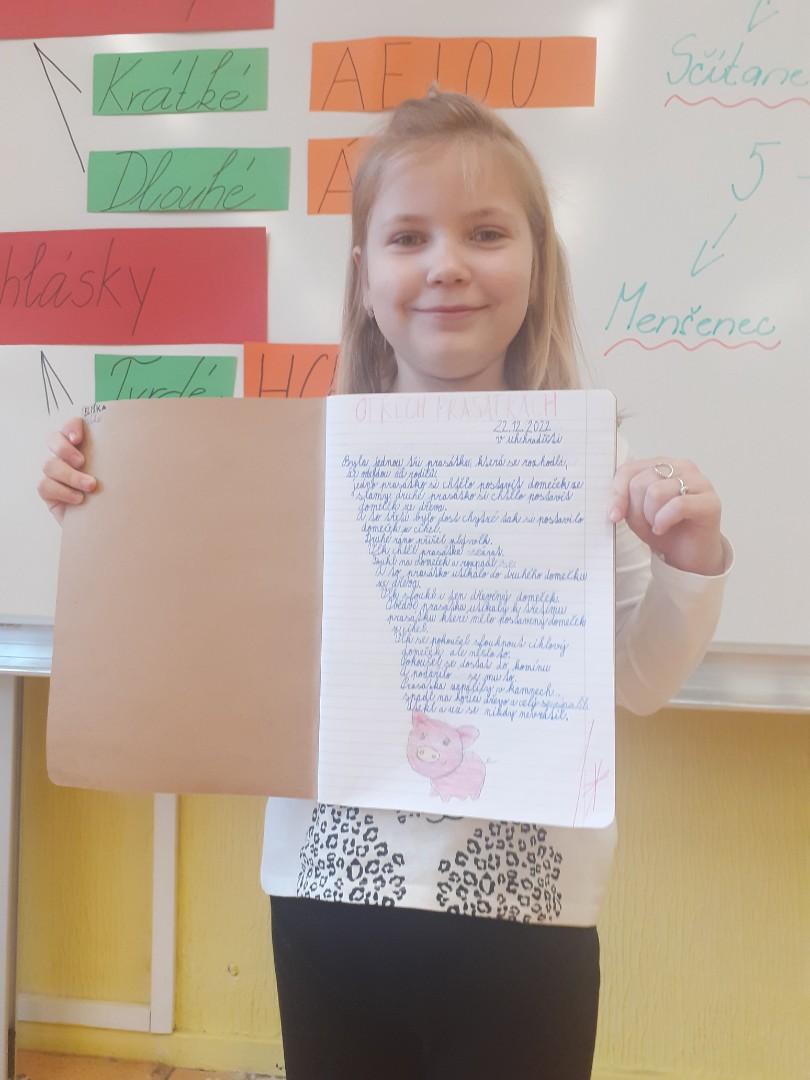 Krátké
AEIOU
Dlouhé
Á
hlásky
Tvrdé
HCH
Sčítanec
5 -
Menšenec
ELIŠKA
O TŘECH PRASÁTKÁCH
22.12.2022
v uh.hradišti
Byla jednou tři prasátka, která se rozhodla,
že odejdou od rodičů.
Jedno prasátko si chtělo postavit domeček ze
slámy druhé prasátko si chtělo postavit
domeček ze dřeva.
A to třetí bylo dost chytré tak si postavilo
domeček z cihel.
Druhé ráno přišel zlý vlk.
Vlk chtěl prasátka sežrat.
Foukl na domeček a rozpadl se.
A to prasátko utíkalo do druhého domečku
ze dřeva.
Vlk sfoukl i ten dřevěný domeček.
Obědvě prasátka utíkaly k třetímu
prasátku které mělo postavený domeček
z cihel.
Vlk se pokoušel sfouknout cihlový
domeček ale nešlo to.
Pokoušel se dostat do komínu
A podařilo se mu to.
Prasátka zapálily v kamnech.
spadl na horké dřevo a celý se spálil.
Utekl a už se nikdy nevrátil.